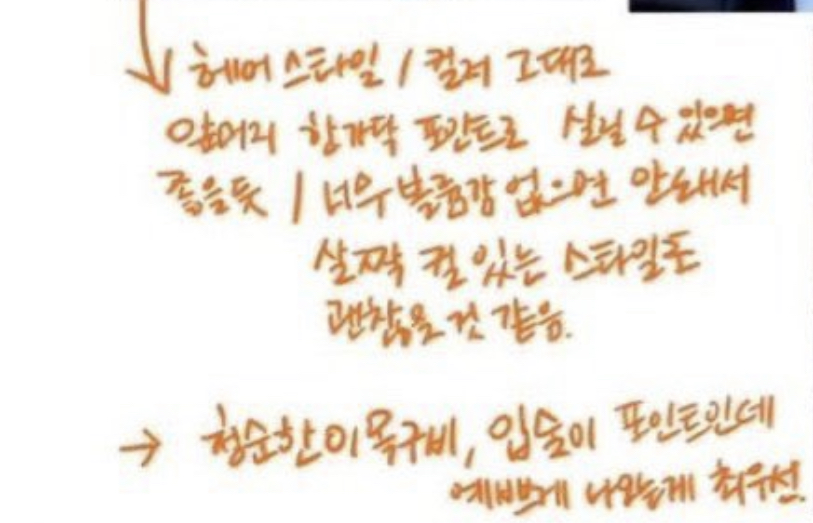 헤어 스타일 / 컬러 그대로
앞머리 한가닥 포인트로 살릴 수 있으면
좋을듯 / 너무 볼륨감 없으면 안돼서
살짝 컬 있는 스타일도
괜찮을 것 같음.
→ 청순한 이목구비, 입술이 포인트인데
예쁘게 나오는게 최우선.